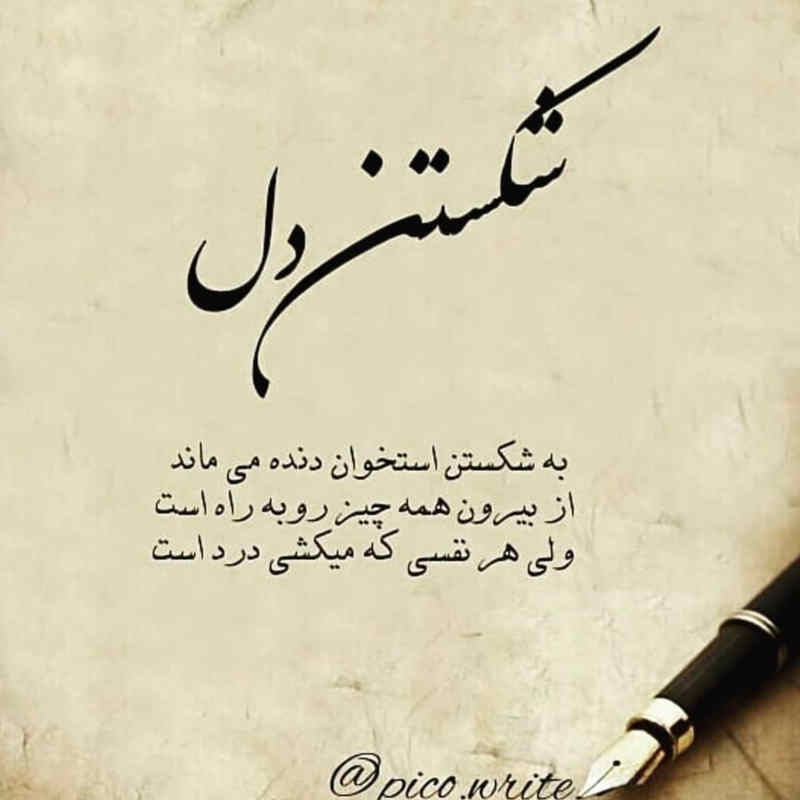 شکستن دل
به شکستن استخوان دنده می ماند
از بیرون همه چیز روبه راه است
ولی هر نفسی که میکشی درد است
@pico.write